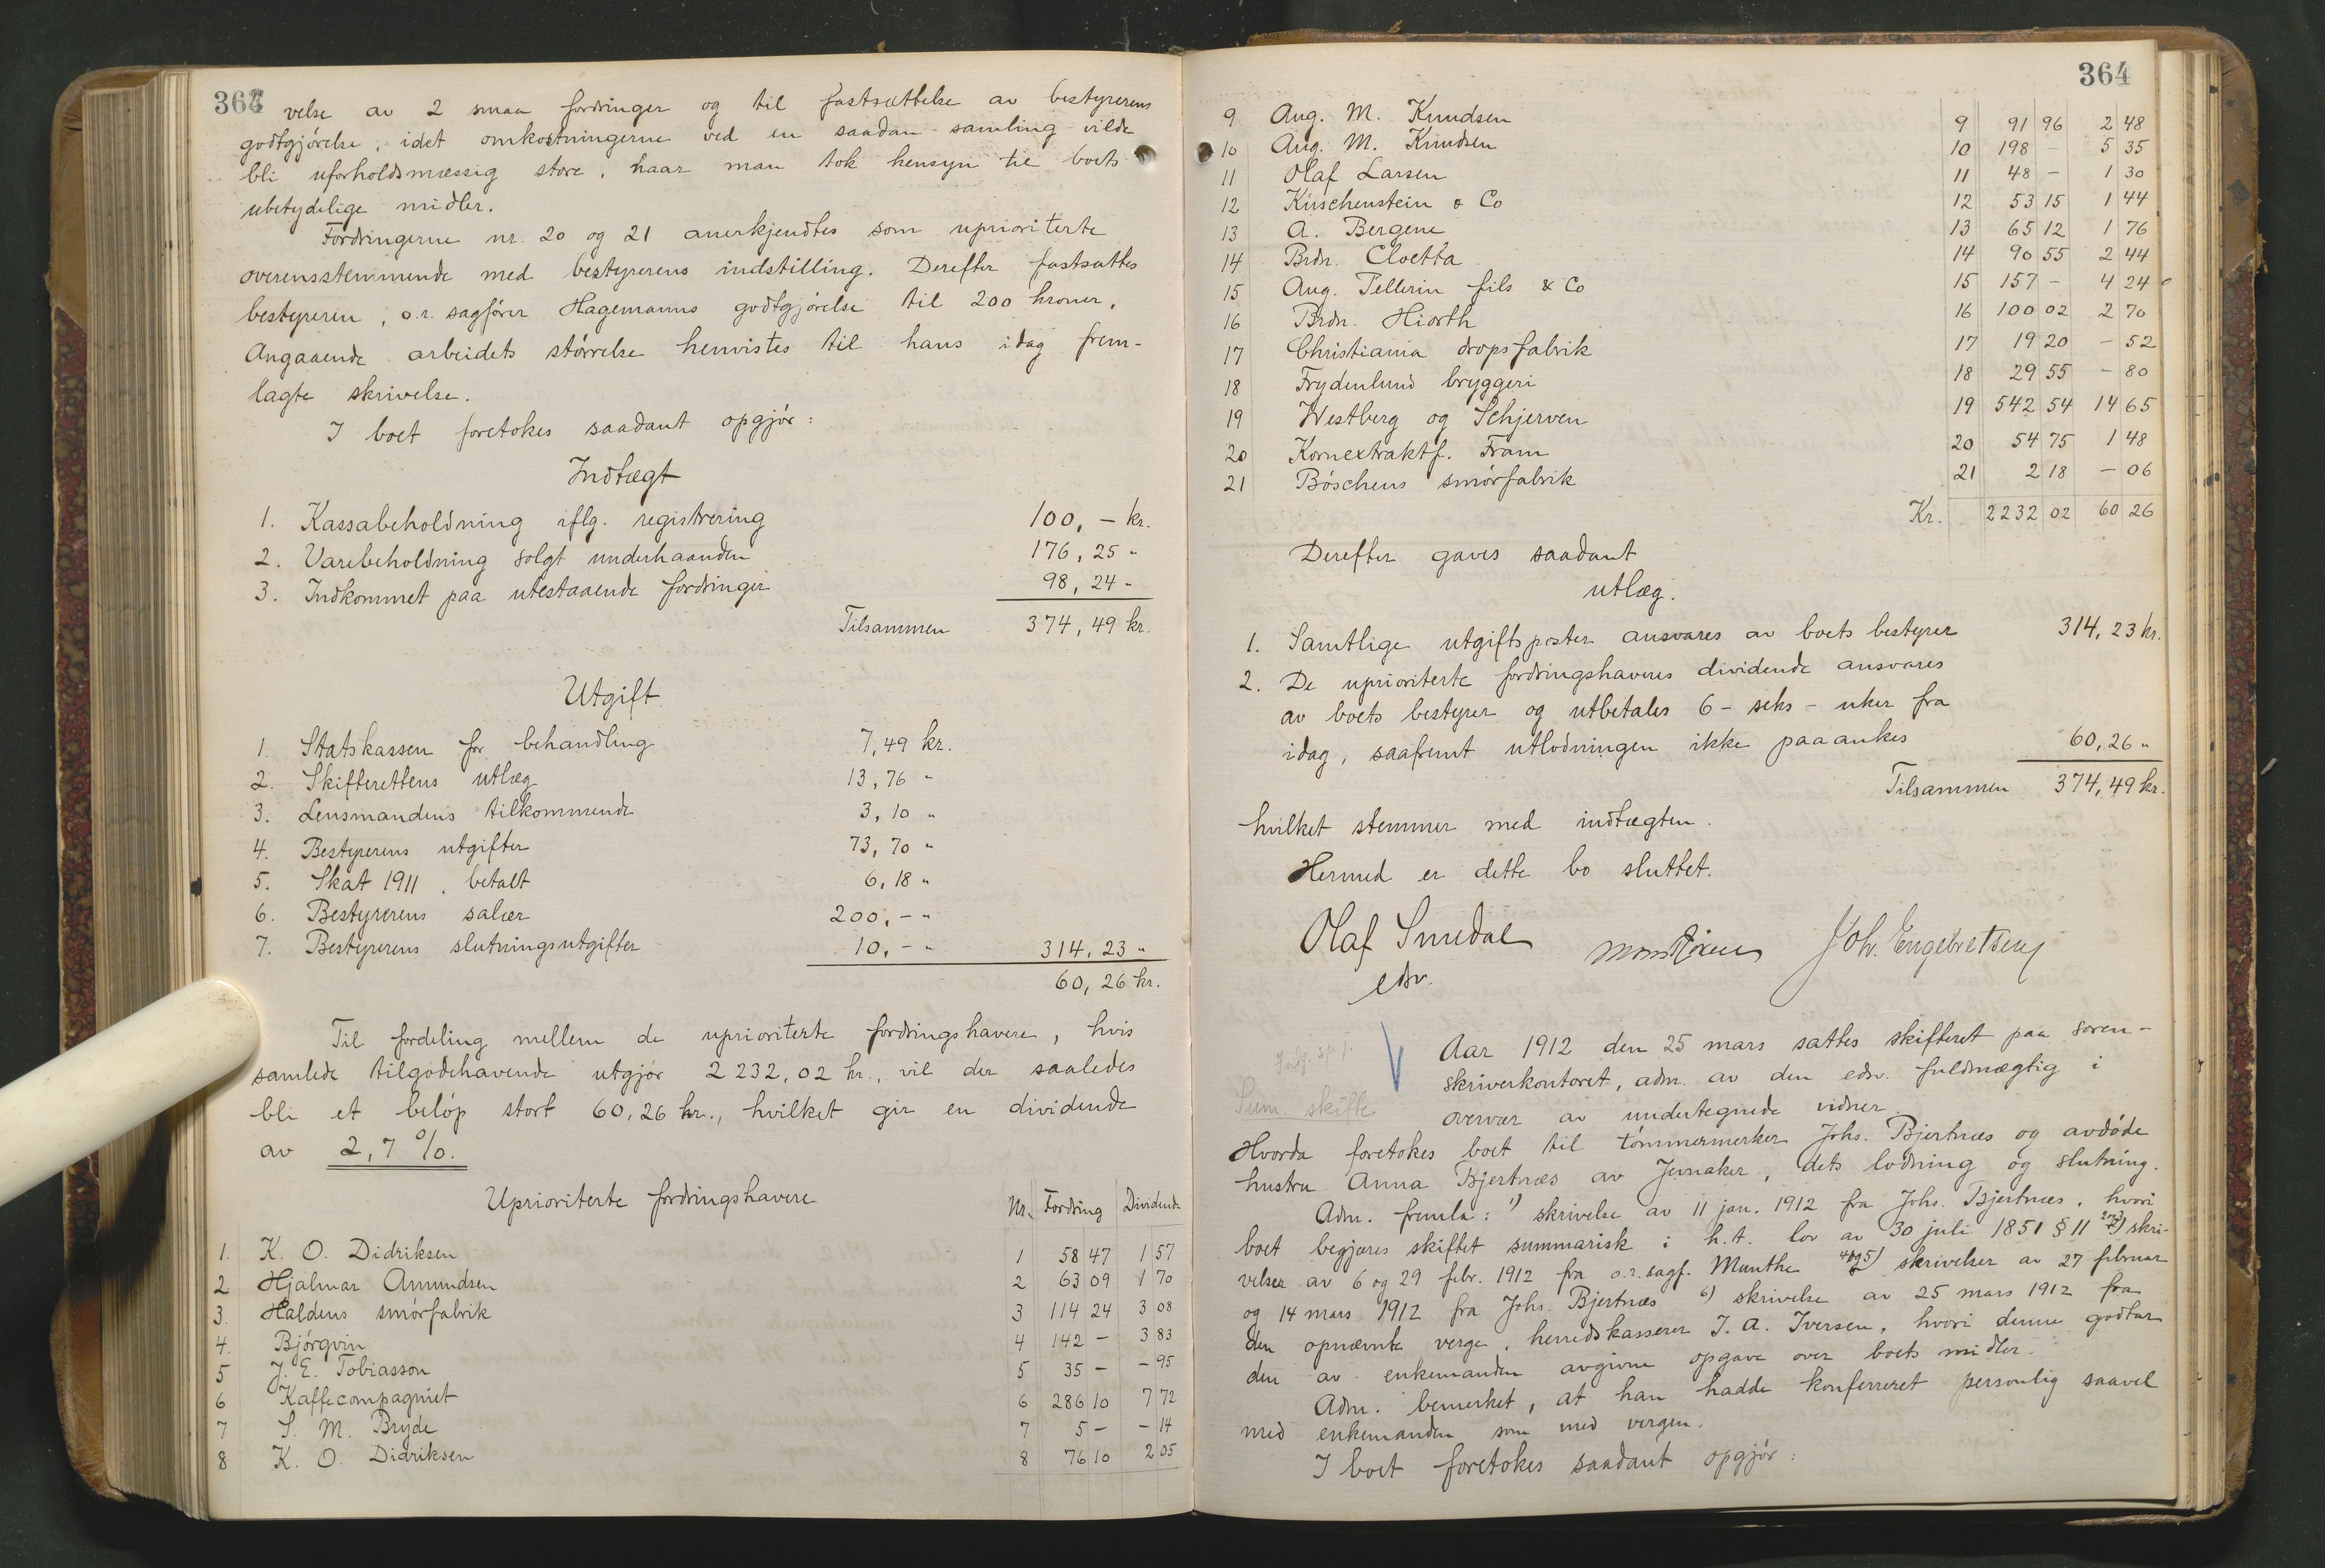 363
velse av 2 smaa fordringer og til fastsættelse av bestyrerens
godtgjórelse, idet omkostningerne ved en saadan samling vilde
bli uforholdsmæssig store, naar man tok hensyn til boets
ubetydelige midler.
Fordringerne nr. 20 og 21 anerkjendtes som uprioriterte
overensstemmende med bestyrerens indstilling. Derefter fastsattes
bestyreren, o.r. sagfórer Hagemanns godtgjórelse til 200 kroner.
Angaaende arbeidets stórrelse henvistes til hans idag frem-
lagte skrivelse.
I boet foretokes saadant opgjór:
Indtægt
1. Kassabeholdning iflg. registrering 100,- kr.
2. Varebeholdning solgt underhaanden 176,25 "
3. Indkommet paa utestaaende fordringer 98,24 -
Tilsammen 374,49 kr.
Utgift
1. Statskassen for behandling 7,49 kr.
2. Skifterettens utlæg 13,76 "
3. Lensmandens tilkommende 3,10 "
4. Bestyrerens utgifter 73,70 "
5. Skat 1911, betalt 6,18 "
6. Bestyrerens salær 200,- "
7. Bestyrerens slutningsutgifter 10,- " 314,23 "
60,26 kr.
Til fordeling mellem de uprioriterte fordringshavere, hvis
samlede tilgodehavende utgjór 2232,02 kr., vil der saaledes
bli et belóp stort 60,26 kr., hvilket gir en dividende
av 2,7 %.
Uprioriterte fordringshavere Nr. Fordring Dividende
1. K. O. Didriksen 1 58 47 1 57
2 Hjalmar Amundsen 2 63 09 1 70
3. Haldens smórfabrik 3 114 24 3 08
4. Bjórgvin 4 142 - 3 83
5 J. E. Tobiasson 5 35 - - 95
6 Kaffecompagniet 6 286 10 7 72
7 S. M. Bryde 7 5 - - 14
8 K. O. Didriksen 8 76 10 2 05
364
9 Aug. M. Knudsen 9 91 96 2 48
10 Aug. M. Knudsen 10 198 - 5 35
11 Olaf Larsen 11 48 - 1 30
12 Kirschenstein & Co 12 53 15 1 44
13 A. Bergene 13 65 12 1 76
14 Brdr. Cloetta 14 90 55 2 44
15 Aug. Pellerin fils & Co 15 157 - 4 24
16 Brdr. Hiorth 16 100 02 2 70
17 Christiania dropsfabrik 17 19 20 - 52
18 Frydenlund bryggeri 18 29 55 - 80
19 Westberg og Schjerven 19 542 54 14 65
20 Kornextraktf. Fram 20 54 75 1 48
21 Bóschens smórfabrik 21 2 18 - 06
Kr. 2232 02 60 26
Derefter gaves saadant
utlæg.
1. Samtlige utgiftsposter ansvares av boets bestyrer 314,23 kr.
2. De uprioriterte fordringshaveres dividende ansvares
av boets bestyrer og utbetales 6 - seks - uker fra
idag, saafremt utlodningen ikke paaankes 60,26 "
Tilsammen 374,49 kr.
hvilket stemmer med indtægten.
Hermed er dette bo sluttet.
Olaf Smedal Joh. Engebretsen
edsv.
Aar 1912 den 25 mars sattes skifteret paa soren-
skriverkontoret, adm. av den edsv. fuldmægtig i
Sum. skifte
overvær av undertegnede vidner.
Hvorda foretokes boet til tómmermerker Johs. Bjertnæs og avdóde
hustru Anna Bjertnæs av Jevnaker, dets lodning og slutning.
Adm. fremla: 1) skrivelse av 11 jan. 1912 fra Johs. Bjertnæs, hvori
boet begjæres skiftet summarisk i h.t. lov av 30 juli 1851 § 11 2og3) skri-
velser av 6 og 29 febr. 1912 fra o.r.sagf. Munthe 4og5) skrivelser av 27 februar
og 14 mars 1912 fra Johs. Bjertnæs 6) skrivelse av 25 mars 1912 fra
den opnævnte verge, herredskasserer J. A. Iversen, hvori denne godtar
den av enkemanden avgivne opgave over boets midler.
Adm. bemerket, at han hadde konfereret personlig saavel
med enkemanden som med vergen.
I boet foretokes saadant opgjór: